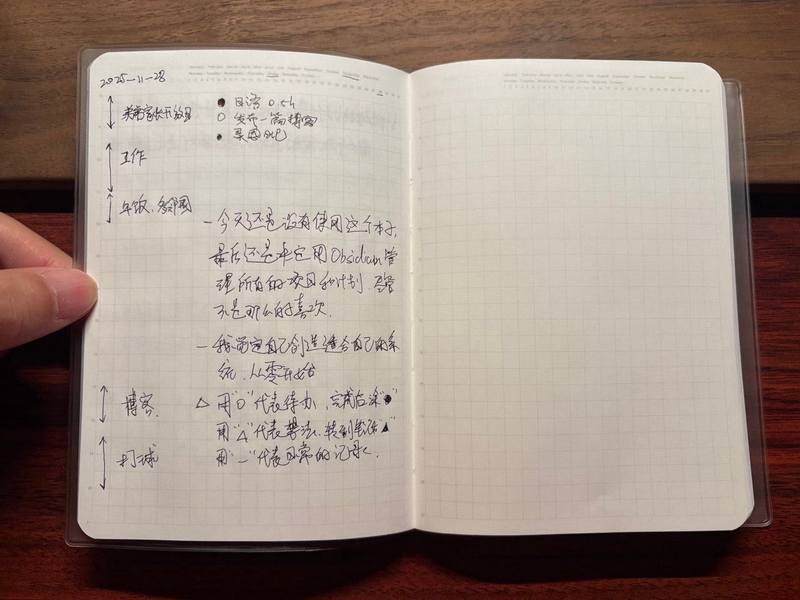 2025-11-28
家长开放日
● 日语 0.5h
○ 发布一篇博客
●
工作
午饭、
- 今天还是没有使用这个本子,
最后还是决定用Obsidian管
理所有的项目和计划 尽管
不是那么的喜欢.
- 我决定自己创造适合自己的系
统, 从零开始
博客.
△ 用"○"代表待办, 完成后涂"●"
用"△"代表想法, 转到笔记"▲"
用"-"代表日常的记录.
打球